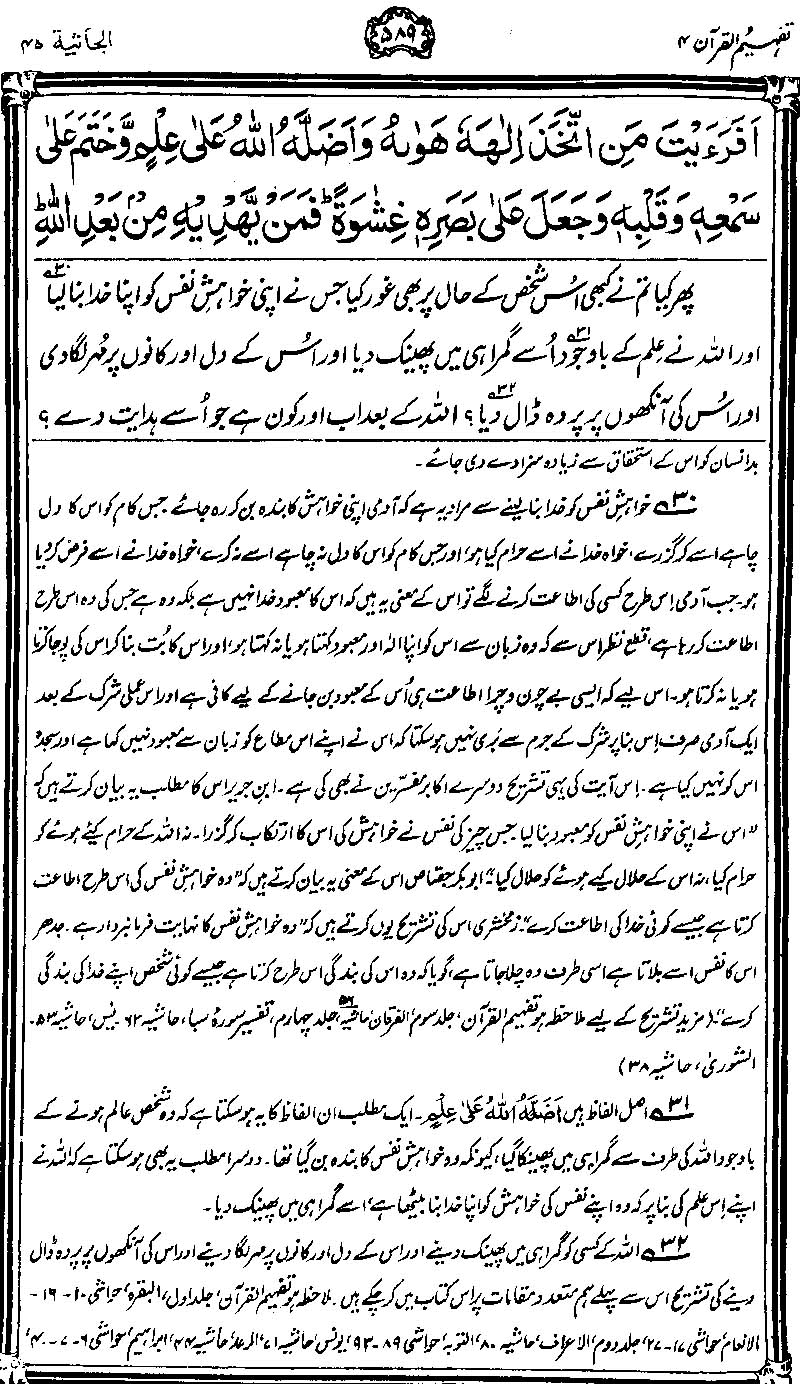 تفہیم القرآن ۴
۵۸۹
الجاثیۃ ۴۵
اَفَرَءَيْتَ مَنِ اتَّخَذَ اِلٰهَهٗ هَوٰىهُ وَاَضَلَّهُ اللّٰهُ عَلٰى عِلْمٍ وَّخَتَمَ عَلٰى
سَمْعِهٖ وَقَلْبِهٖ وَجَعَلَ عَلٰى بَصَرِهٖ غِشٰوَةً ؕ فَمَنْ يَّهْدِيْهِ مِنْۢ بَعْدِ اللّٰهِ ؕ
پھر کیا تم نے کبھی اُس شخص کے حال پر بھی غور کیا جس نے اپنی خواہشِ نفس کو اپنا خدا بنا لیا۳۰
اور اللہ نے عِلم کے باوجود۳۱ اُسے گمراہی میں پھینک دیا اور اُس کے دل اور کانوں پر مُہر لگا دی
اور اُس کی آنکھوں پر پردہ ڈال دیا؟۳۲ اللہ کے بعد اب اور کون ہے جو اُسے ہدایت دے ؟
بد انسان کو اس کے استحقاق سے زیادہ سزا دے دی جائے۔
۳۰ خواہشِ نفس کو خدا بنا لینے سے مراد یہ ہے کہ آدمی اپنی خواہش کا بندہ بن کر رہ جائے۔ جس کام کو اس کا دل
چاہے اسے کر گزرے، خواہ خدا نے اسے حرام کیا ہو، اور جس کام کو اس کا دل نہ چاہے اسے نہ کرے، خواہ خدا نے اسے فرض کر دیا
ہو۔ جب آدمی اِس طرح کسی کی اطاعت کرنے لگے تو اس کے معنی یہ ہیں کہ اس کا معبود خدا نہیں ہے بلکہ وہ ہے جس کی وہ اس طرح
اطاعت کر رہا ہے، قطع نظر اِس سے کہ وہ زبان سے اس کو اپنا اِلٰہ اور معبود کہتا ہو یا نہ کہتا ہو، اور اس کا بُت بنا کر اس کی پوجا کرتا
ہو یا نہ کرتا ہو۔ اس لیے کہ ایسی بے چون و چرا اطاعت ہی اُس کے معبود بن جانے کے لیے کافی ہے اور اس عملی شرک کے بعد
ایک آدمی صرف اِس بنا پر شرک کے جرم سے بَری نہیں ہو سکتا کہ اس نے اپنے اس مطاع کو زبان سے معبود نہیں کہا ہے اور سجدہ
اس کو نہیں کیا ہے۔ اِس آیت کی یہی تشریح دوسرے اکابر مفسرین نے بھی کی ہے۔ ابنِ جریر اس کا مطلب یہ بیان کرتے ہیں کہ
”اس نے اپنی خواہشِ نفس کو معبود بنا لیا۔ جس چیز کی نفس نے خواہش کی اس کا ارتکاب کر گزرا۔ نہ اللہ کے حرام کیے ہوئے کو
حرام کیا، نہ اس کے حلال کیے ہوئے کو حلال کیا“۔ ابوبکر جصّاص اس کے معنی یہ بیان کرتے ہیں کہ ”وہ خواہشِ نفس کی اس طرح اطاعت
کرتا ہے جیسے کوئی خدا کی اطاعت کرے“۔ زمخشری اس کی تشریح یوں کرتے ہیں کہ ”وہ خواہشِ نفس کا نہایت فرمانبردار ہے۔ جدھر
اس کا نفس اسے بلاتا ہے اسی طرف وہ چلا جاتا ہے، گویا کہ وہ اس کی بندگی اس طرح کرتا ہے جیسے کوئی شخص اپنے خدا کی بندگی
کرے“۔ (مزید تشریح کے لیے ملاحظہ ہو تفہیم القرآن، جلد سوم، الفرقان، حاشیہ ۵۶، جلد چہارم، تفسیر سورۂ سبا، حاشیہ ۶۲۔ یٰس، حاشیہ ۵۳۔
الشوریٰ، حاشیہ ۳۸)
۳۱ اصل الفاظ ہیں اَضَلَّهُ اللّٰهُ عَلٰى عِلْمٍ۔ ایک مطلب ان الفاظ کا یہ ہو سکتا ہے کہ وہ شخص عالم ہونے کے
باوجود اللہ کی طرف سے گمراہی میں پھینکا گیا، کیونکہ وہ خواہشِ نفس کا بندہ بن گیا تھا۔ دوسرا مطلب یہ بھی ہو سکتا ہے کہ اللہ نے
اپنے اِس علم کی بنا پر کہ وہ اپنے نفس کی خواہش کو اپنا خدا بنا بیٹھا ہے، اسے گمراہی میں پھینک دیا۔
۳۲ اللہ کے کسی کو گمراہی میں پھینک دینے اور اس کے دل اور کانوں پر مہر لگا دینے اور اس کی آنکھوں پر پردہ ڈال
دینے کی تشریح اس سے پہلے ہم متعدد مقامات پر اس کتاب میں کر چکے ہیں۔ ملاحظہ ہو تفہیم القرآن، جلد اول، البقرہ، حواشی ۱۰۔ ۱۶۔
الانعام، حواشی ۱۷۔ ۲۷، جلد دوم، الاعراف، حاشیہ ۸۰، التوبہ، حواشی ۸۹۔ ۹۳، یونس، حاشیہ ۷۱، الرعد، حاشیہ ۴۴، ابراہیم، حواشی ۶۔ ۷۔ ۴۰،